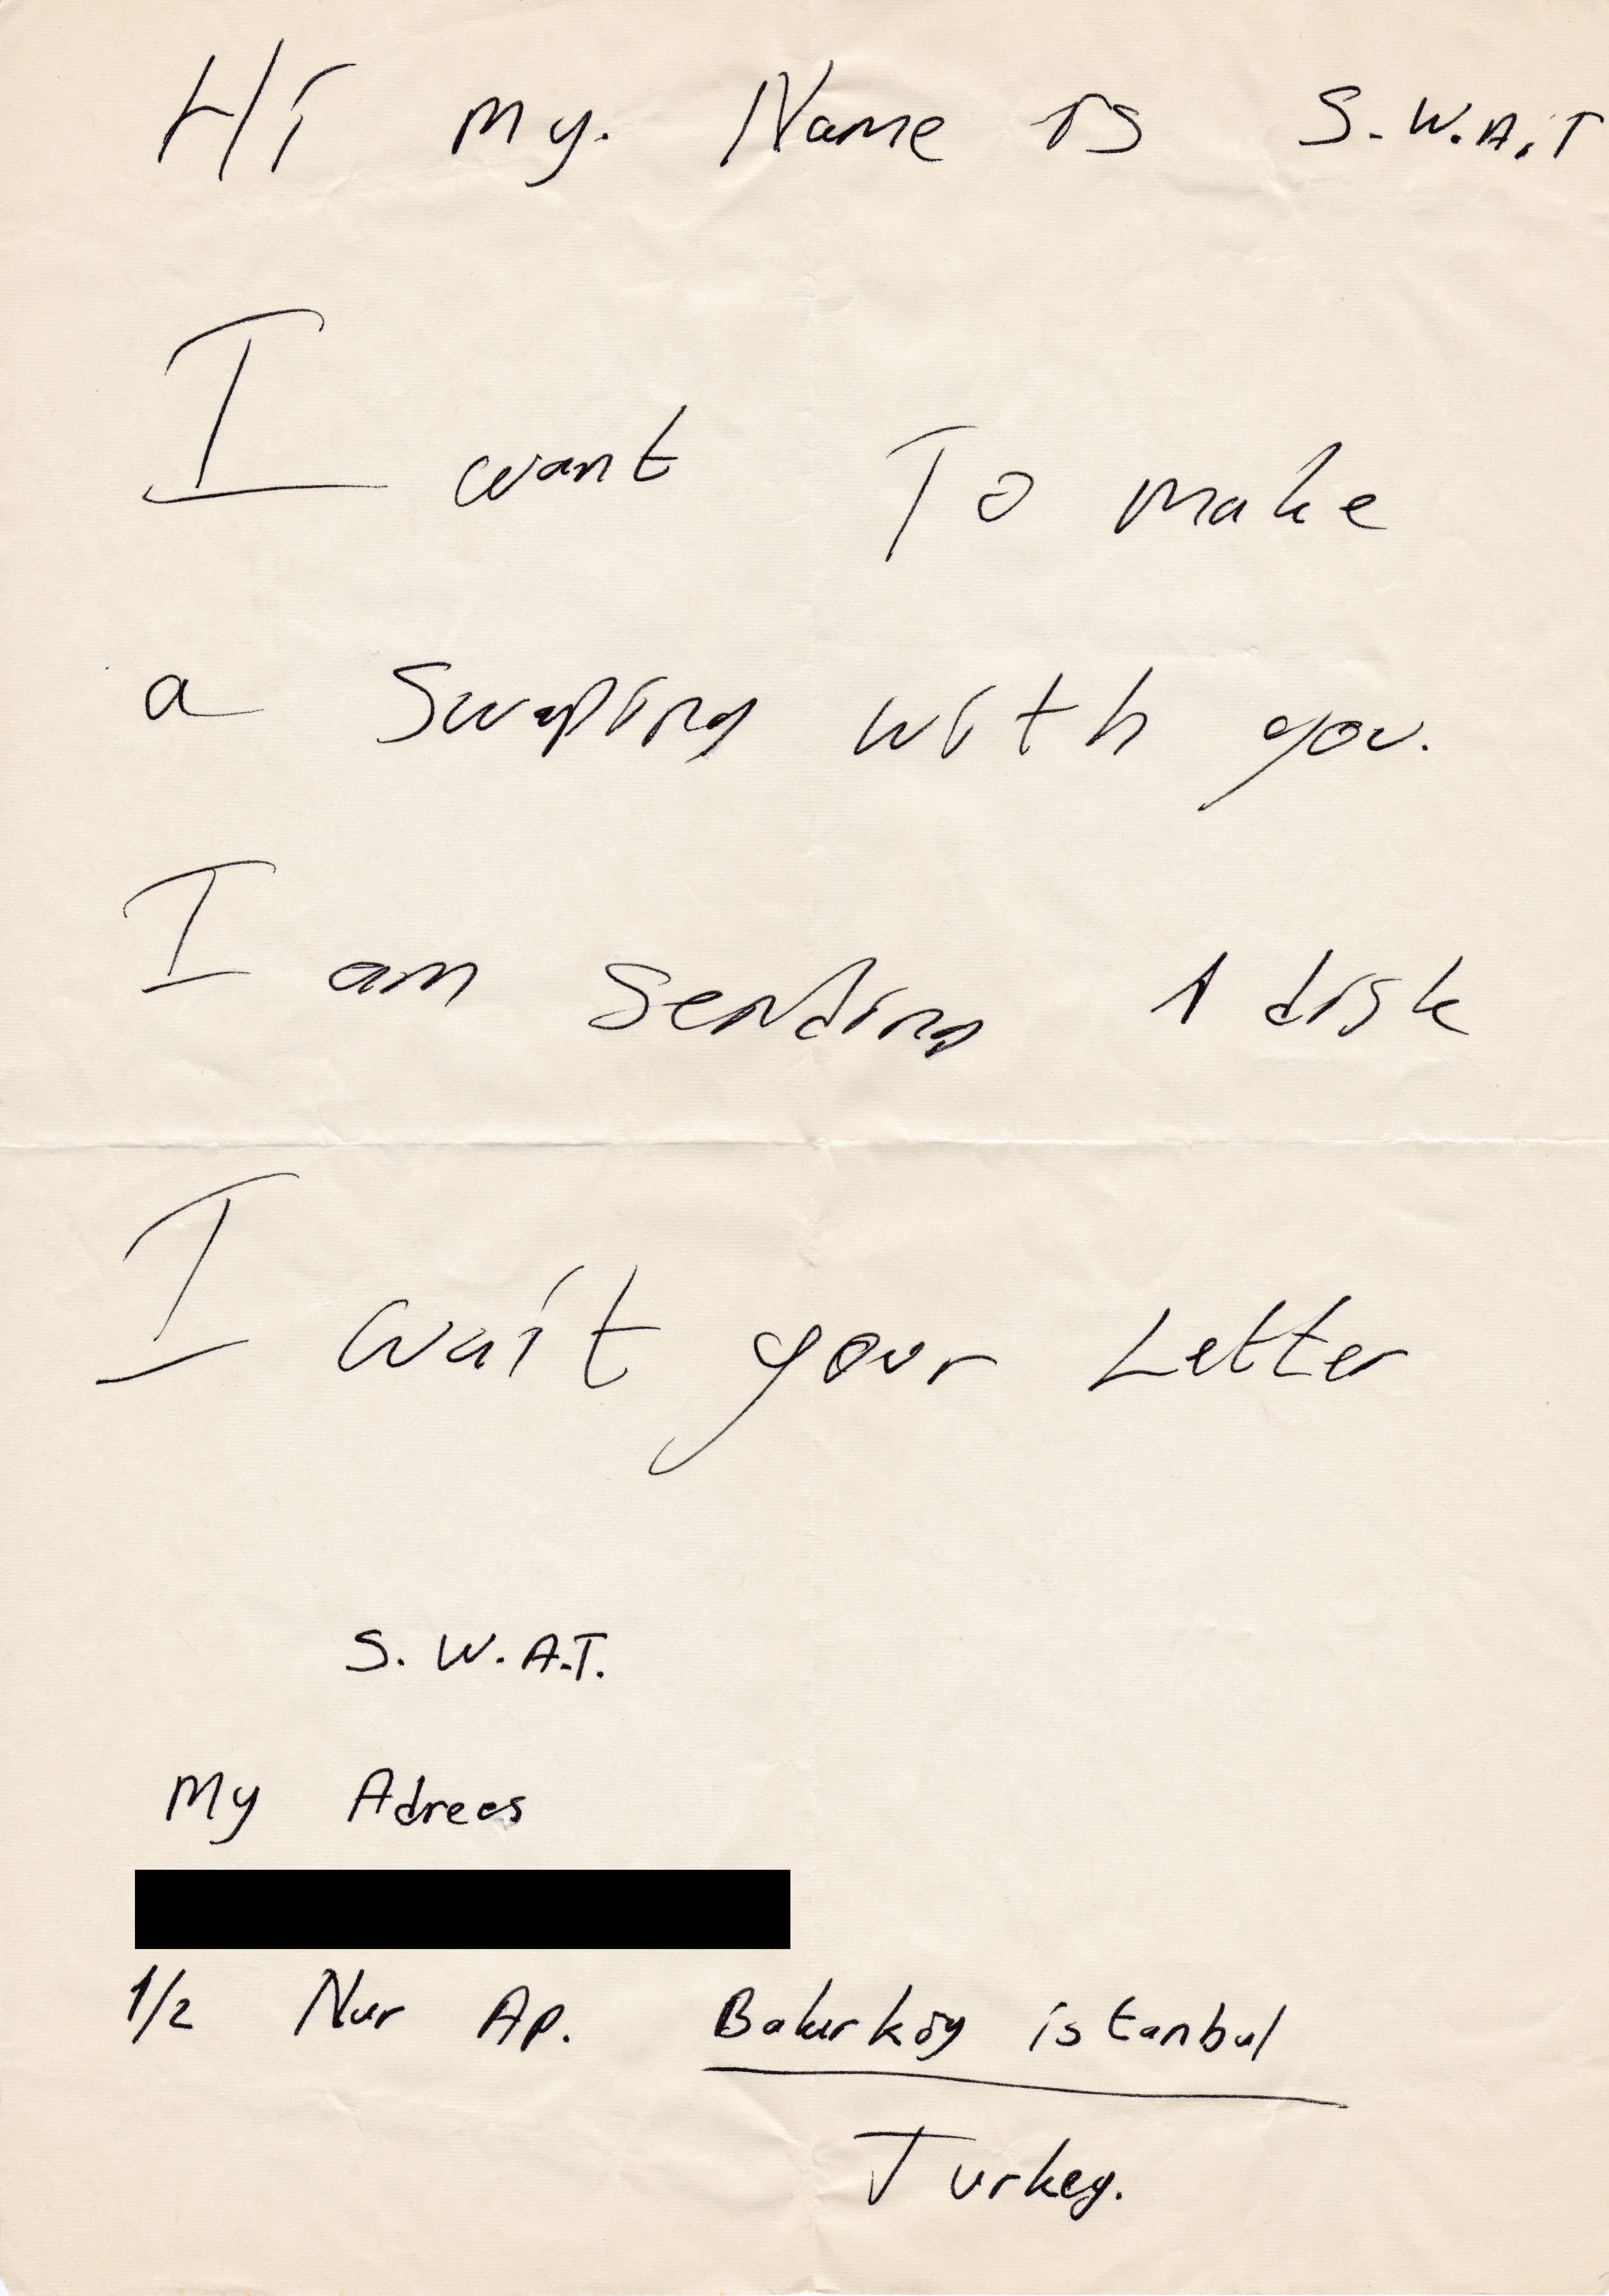 Hi my. Name is S.W.A.T
I want To make
a Swaping with you.
I am Sending 1 disk
I wait your Letter
S.W.A.T.
My Adrees
1/2 Nur Ap. Bakırköy istanbul
Turkey.